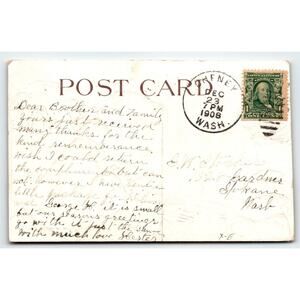 POST CARD
CHENEY
DEC
23
7 PM
1908
WASH.
Dear Brother and Family
yours just received
many thanks for the
kind rememberance,
wish I could return
the compliment but can
not however I have send
George it is small
but our warms greetings
go with it just the same
with much love
Gardner
Spokane
Wash